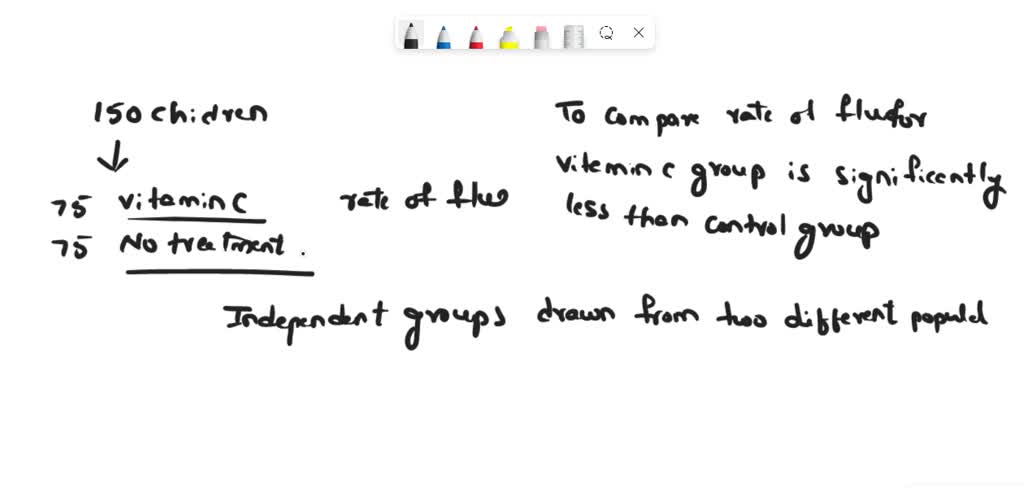 150 chidren
75 vitamin C
75 No treatment.
rate of flue
To compare rate of flu for
vitemin c group is significently
less then control group
Independent groups drawn from two different populd